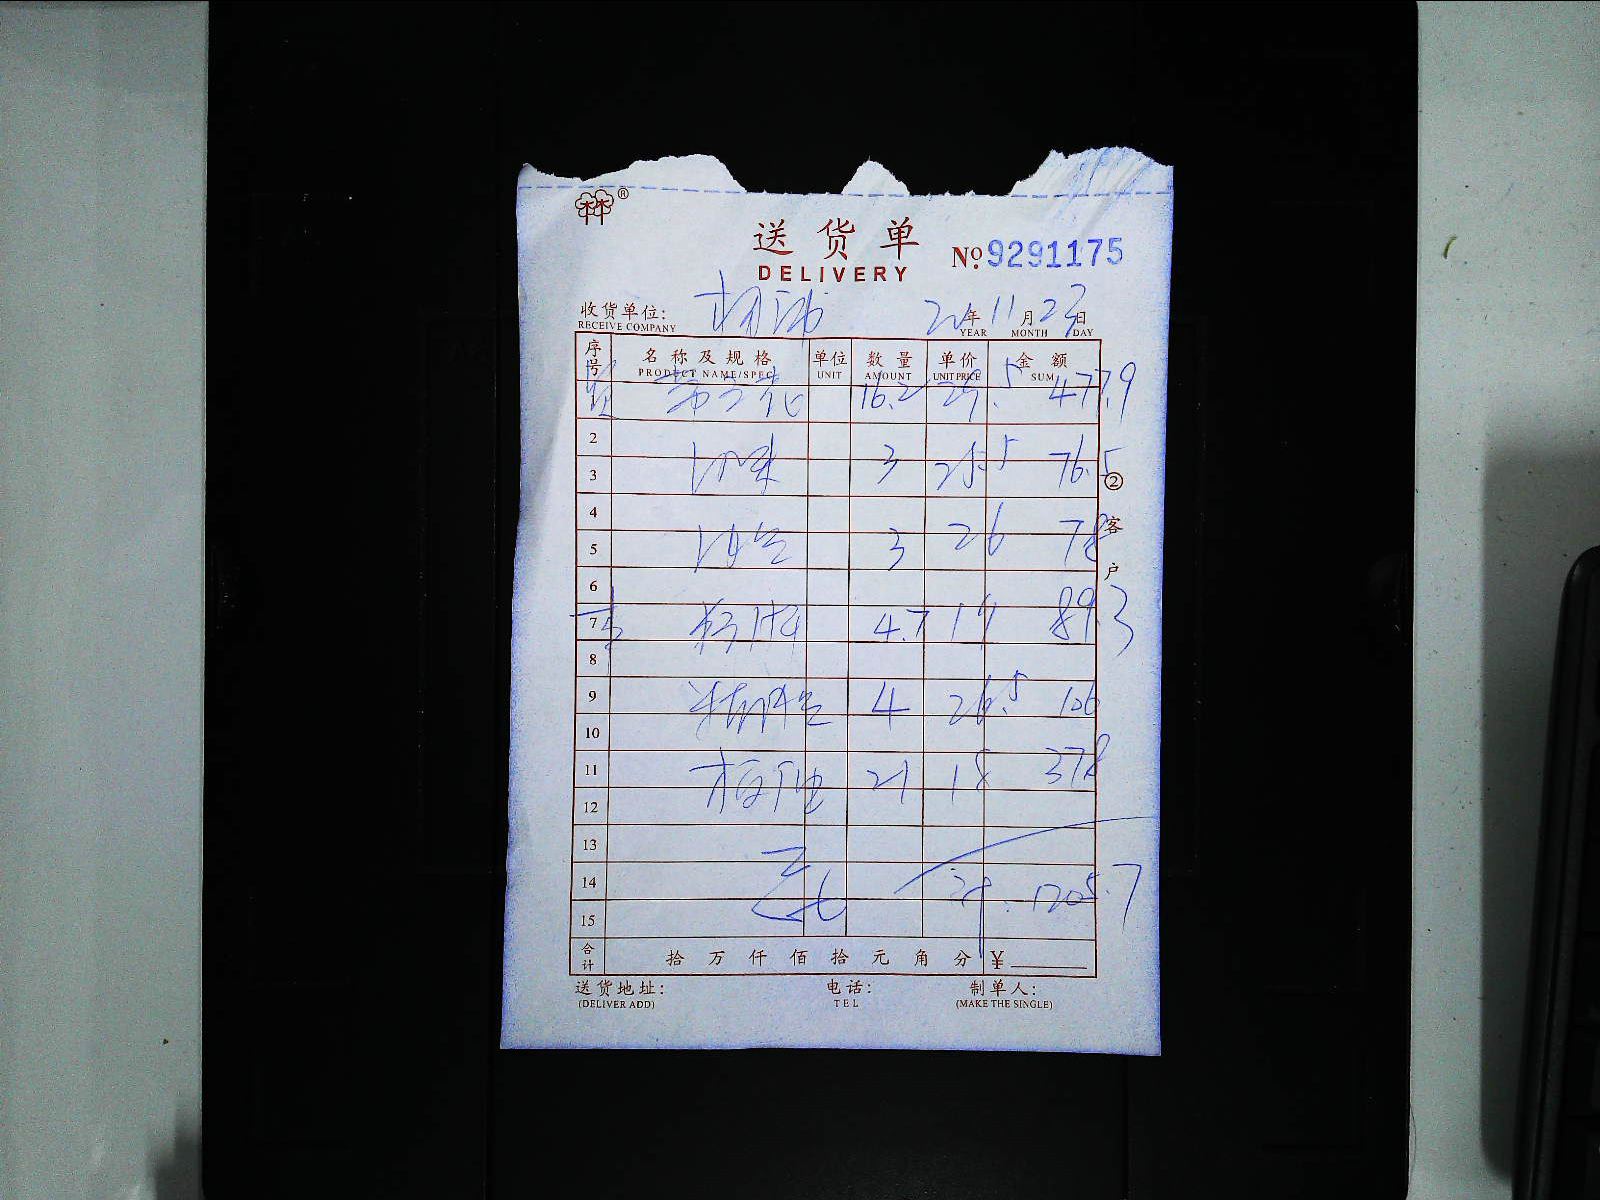 ®
送货单
DELIVERY
№ 9291175
收货单位:
RECEIVE COMPANY
年 11月23日
YEAR MONTH DAY
序号 名称及规格 单位 数量 单价 金额
PRODUCT NAME/SPEC UNIT AMOUNT UNIT PRICE SUM
1 16.2 29.5 477.9
2
3 3 25.5 76.5
4
5 3 26 78
6
7 4.7 19 89.3
8
9 4 26.5 106
10
11 21 18 378
12
13
14 1205.7
15
合计 拾 万 仟 佰 拾 元 角 分 ¥
②客户
送货地址: 电话: 制单人:
(DELIVER ADD) TEL (MAKE THE SINGLE)